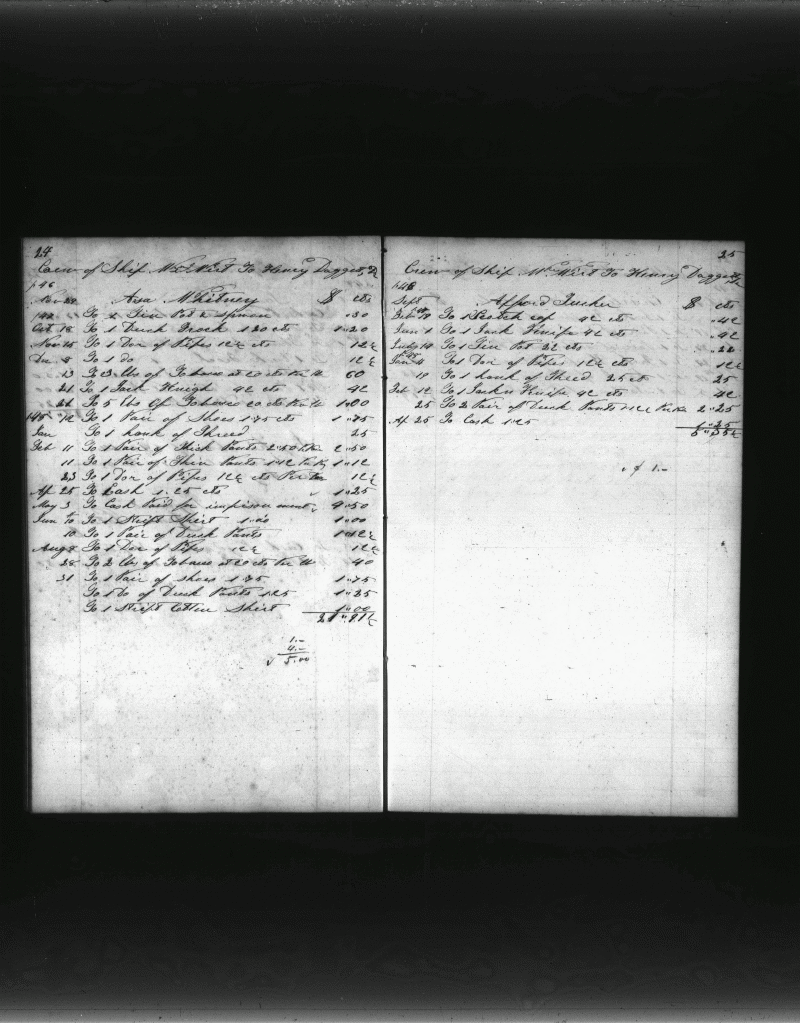 24
Crew of Ship Wm Wirt To Henry Daggett, Dr
1846
Nov 22 Asa Whitney $ cts
To 1 Tin Pot & spoon "30
Oct 18 To 1 Duck Frock 1 20 cts 1"20
Nov 15 To 1 Doz of Pipes 12½ cts 12½
Dec 8 To 1 do 12½
13 To 3 lbs of Tobacco at 20 cts Per lb 60
21 To 1 Jack Kneigh 42 cts 42
26 To 5 lbs Of Tobacco 20 cts Per lb 1"00
To 1 Pair of Shoes 1.75 cts 1"75
Jan To 1 hank of Thred 25
Feb 11 To 1 Pair of Thick Pants 2"50 2"50
11 To 1 Pair of Thin Pants 1"12 1"12
23 To 1 Doz of Pipes 12½ cts Per Doz 12½
Ap 25 To Cash 1.25 cts 1"25
May 3 To Cash Paid for imprisonment 9"50
Jun 10 To 1 Stript Shirt 1.00 1"00
10 To 1 Pair of Duck Pants 1"12½
Aug 8 To 1 Doz of Pipes 12½ 12½
28 To 2 lbs of Tobacco at 20 cts Per lb 40
31 To 1 Pair of shoes 1.75 1"75
To 1 do of Duck Pants 1.25 1"25
To 1 Stript Cotton Shirt 1"00
1.–
4.–
√ 5.00
25
Crew of Ship Wm Wirt To Henry Daggett, Dr
Sept Tucker $ cts
To 1 Scotch cap 42 cts "42
Jan 1 To 1 Jack Knife 42 cts "42
To 1 Tin Pot 22 cts "22
To 1 Doz of Pipes 12½ cts 12½
19 To 1 hank of Thred 25 ct 25
Feb 12 To 1 Jack Knife 42 cts 42
25 To 2 Pair of Duck Pants 2"25
Ap 25 To Cash 1.25 1"25
5"35½
1.–